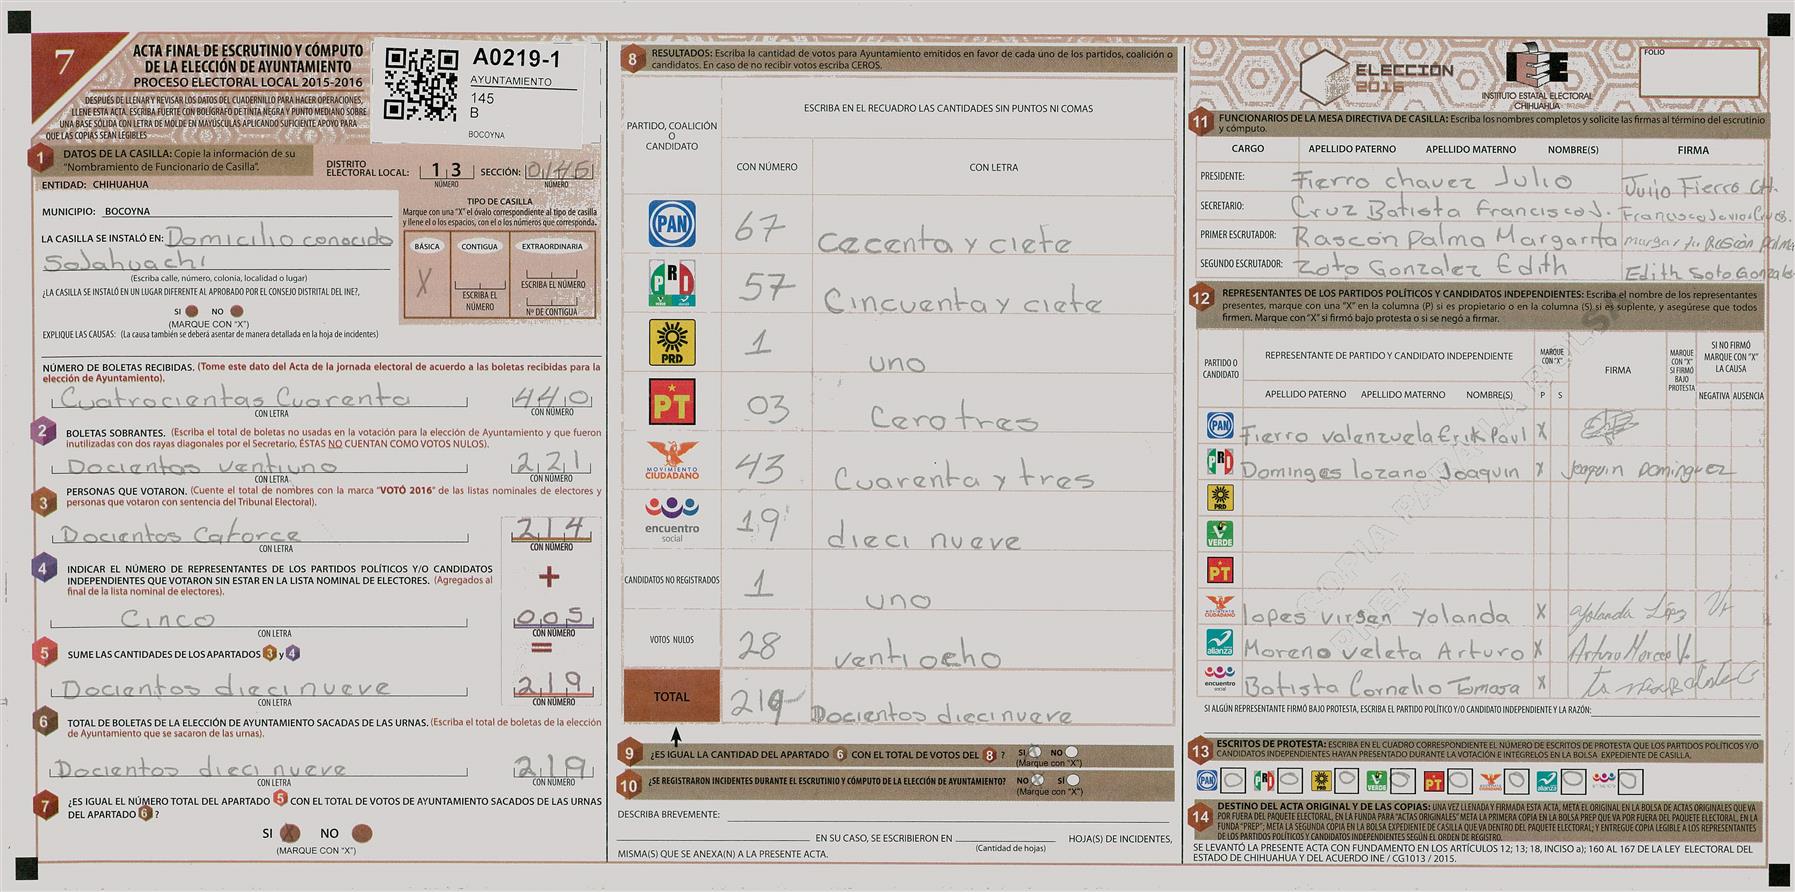 7
ACTA FINAL DE ESCRUTINIO Y CÓMPUTO
DE LA ELECCIÓN DE AYUNTAMIENTO
PROCESO ELECTORAL LOCAL 2015-2016
DESPUÉS DE LLENAR Y REVISAR LOS DATOS DEL CUADERNILLO PARA HACER OPERACIONES,
LLENE ESTA ACTA. ESCRIBA FUERTE CON BOLÍGRAFO DE TINTA NEGRA Y PUNTO MEDIANO SOBRE
UNA BASE SÓLIDA CON LETRA DE MOLDE EN MAYÚSCULAS APLICANDO SUFICIENTE APOYO PARA
QUE LAS COPIAS SEAN LEGIBLES
A0219-1
AYUNTAMIENTO
145
B
BOCOYNA
1 DATOS DE LA CASILLA: Copie la información de su
"Nombramiento de Funcionario de Casilla".
DISTRITO
ELECTORAL LOCAL: 13 SECCIÓN: 0145
NÚMERO NÚMERO
ENTIDAD: CHIHUAHUA
MUNICIPIO: BOCOYNA
LA CASILLA SE INSTALÓ EN: Domicilio conocido
Solahuachi
(Escriba calle, número, colonia, localidad o lugar)
¿LA CASILLA SE INSTALÓ EN UN LUGAR DIFERENTE AL APROBADO POR EL CONSEJO DISTRITAL DEL INE?,
SI NO
(MARQUE CON "X")
EXPLIQUE LAS CAUSAS: (La causa también se deberá asentar de manera detallada en la hoja de incidentes)
TIPO DE CASILLA
Marque con una "X" el óvalo correspondiente al tipo de casilla
y llene el o los espacios, con el o los números que corresponda.
BÁSICA CONTIGUA EXTRAORDINARIA
X
ESCRIBA EL NÚMERO
ESCRIBA EL NÚMERO
Nº DE CONTIGUA
NÚMERO DE BOLETAS RECIBIDAS. (Tome este dato del Acta de la jornada electoral de acuerdo a las boletas recibidas para la
elección de Ayuntamiento).
Cuatrocientas Cuarenta 440
CON LETRA CON NÚMERO
2 BOLETAS SOBRANTES. (Escriba el total de boletas no usadas en la votación para la elección de Ayuntamiento y que fueron
inutilizadas con dos rayas diagonales por el Secretario, ÉSTAS NO CUENTAN COMO VOTOS NULOS).
Docientos ventiuno 221
CON LETRA CON NÚMERO
3 PERSONAS QUE VOTARON. (Cuente el total de nombres con la marca "VOTÓ 2016" de las listas nominales de electores y
personas que votaron con sentencia del Tribunal Electoral).
Docientos Catorce 214
CON LETRA CON NÚMERO
4 INDICAR EL NÚMERO DE REPRESENTANTES DE LOS PARTIDOS POLÍTICOS Y/O CANDIDATOS
INDEPENDIENTES QUE VOTARON SIN ESTAR EN LA LISTA NOMINAL DE ELECTORES. (Agregados al
final de la lista nominal de electores).
+
Cinco 005
CON LETRA CON NÚMERO
5 SUME LAS CANTIDADES DE LOS APARTADOS 3 y 4
=
Docientos dieci nueve 219
CON LETRA CON NÚMERO
6 TOTAL DE BOLETAS DE LA ELECCIÓN DE AYUNTAMIENTO SACADAS DE LAS URNAS. (Escriba el total de boletas de la elección
de Ayuntamiento que se sacaron de las urnas).
Docientos dieci nueve 219
CON LETRA CON NÚMERO
7 ¿ES IGUAL EL NÚMERO TOTAL DEL APARTADO 5 CON EL TOTAL DE VOTOS DE AYUNTAMIENTO SACADOS DE LAS URNAS
DEL APARTADO 6?
SI X NO
(MARQUE CON "X")
8 RESULTADOS: Escriba la cantidad de votos para Ayuntamiento emitidos en favor de cada uno de los partidos, coalición o
candidatos. En caso de no recibir votos escriba CEROS.
ESCRIBA EN EL RECUADRO LAS CANTIDADES SIN PUNTOS NI COMAS
PARTIDO, COALICIÓN
O
CANDIDATO
CON NÚMERO CON LETRA
PAN 67 cecenta y ciete
PRD 57 Cincuenta y ciete
PRD 1 uno
PT 03 Cero tres
MOVIMIENTO CIUDADANO 43 Cuarenta y tres
encuentro social 19 dieci nueve
CANDIDATOS NO REGISTRADOS 1 uno
VOTOS NULOS 28 venti ocho
TOTAL 219 Docientos dieci nueve
9 ¿ES IGUAL LA CANTIDAD DEL APARTADO 6 CON EL TOTAL DE VOTOS DEL 8? SI X NO
(Marque con "X")
10 ¿SE REGISTRARON INCIDENTES DURANTE EL ESCRUTINIO Y CÓMPUTO DE LA ELECCIÓN DE AYUNTAMIENTO? NO X SÍ
(Marque con "X")
DESCRIBA BREVEMENTE:
EN SU CASO, SE ESCRIBIERON EN HOJA(S) DE INCIDENTES,
(Cantidad de hojas)
MISMA(S) QUE SE ANEXA(N) A LA PRESENTE ACTA.
ELECCIÓN
2016
IEE
INSTITUTO ESTATAL ELECTORAL
CHIHUAHUA
FOLIO
11 FUNCIONARIOS DE LA MESA DIRECTIVA DE CASILLA: Escriba los nombres completos y solicite las firmas al término del escrutinio
y cómputo.
CARGO APELLIDO PATERNO APELLIDO MATERNO NOMBRE(S) FIRMA
PRESIDENTE: Fierro chavez Julio Julio Fierro CH.
SECRETARIO: Cruz Batista Francisco J. Francisco Javier Cruz B.
PRIMER ESCRUTADOR: Rascón Palma Margarita margarita Rascón Palma
SEGUNDO ESCRUTADOR: Zoto Gonzalez Edith Edith Soto Gonzalez
12 REPRESENTANTES DE LOS PARTIDOS POLÍTICOS Y CANDIDATOS INDEPENDIENTES: Escriba el nombre de los representantes
presentes, marque con una "X" en la columna (P) si es propietario o en la columna (S) si es suplente, y asegúrese que todos
firmen. Marque con "X" si firmó bajo protesta o si se negó a firmar.
PARTIDO O
CANDIDATO
REPRESENTANTE DE PARTIDO Y CANDIDATO INDEPENDIENTE
MARQUE CON "X"
FIRMA
MARQUE CON "X" SI FIRMÓ BAJO PROTESTA
SI NO FIRMÓ MARQUE CON "X" LA CAUSA
APELLIDO PATERNO APELLIDO MATERNO NOMBRE(S) P S NEGATIVA AUSENCIA
PAN Fierro valenzuela Erik Paul X
PRD Dominges lozano Joaquin X Joaquin Dominguez
PRD
VERDE
PT
MOVIMIENTO CIUDADANO lopes virsen Yolanda X Yolanda López
alianza Moreno veleta Arturo X Arturo Moreno V.
encuentro social Batista Cornelio Tomasa X
SI ALGÚN REPRESENTANTE FIRMÓ BAJO PROTESTA, ESCRIBA EL PARTIDO POLÍTICO Y/O CANDIDATO INDEPENDIENTE Y LA RAZÓN:
13 ESCRITOS DE PROTESTA: ESCRIBA EN EL CUADRO CORRESPONDIENTE EL NÚMERO DE ESCRITOS DE PROTESTA QUE LOS PARTIDOS POLÍTICOS Y/O
CANDIDATOS INDEPENDIENTES HAYAN PRESENTADO DURANTE LA VOTACIÓN E INTÉGRELOS EN LA BOLSA EXPEDIENTE DE CASILLA.
PAN 0 PRD 0 PRD 0 VERDE 0 PT 0 0 alianza 0 0
14 DESTINO DEL ACTA ORIGINAL Y DE LAS COPIAS: UNA VEZ LLENADA Y FIRMADA ESTA ACTA, META EL ORIGINAL EN LA BOLSA DE ACTAS ORIGINALES QUE VA
POR FUERA DEL PAQUETE ELECTORAL, EN LA FUNDA PARA "ACTAS ORIGINALES" META LA PRIMERA COPIA EN LA BOLSA PREP QUE VA POR FUERA DEL PAQUETE ELECTORAL, EN LA
FUNDA "PREP"; META LA SEGUNDA COPIA EN LA BOLSA EXPEDIENTE DE CASILLA QUE VA DENTRO DEL PAQUETE ELECTORAL; Y ENTREGUE COPIA LEGIBLE A LOS REPRESENTANTES
DE LOS PARTIDOS POLÍTICOS Y CANDIDATOS INDEPENDIENTES SEGÚN EL ORDEN DE REGISTRO.
SE LEVANTÓ LA PRESENTE ACTA CON FUNDAMENTO EN LOS ARTÍCULOS 12; 13; 18, INCISO a); 160 AL 167 DE LA LEY ELECTORAL DEL
ESTADO DE CHIHUAHUA Y DEL ACUERDO INE / CG1013 / 2015.